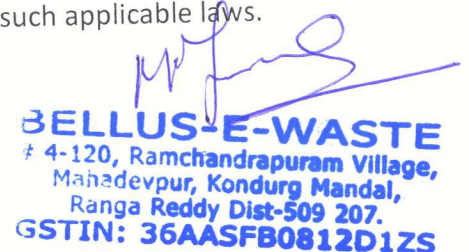 such applicable laws.
BELLUS-E-WASTE
# 4-120, Ramchandrapuram Village,
Mahadevpur, Kondurg Mandal,
Ranga Reddy Dist-509 207.
GSTIN: 36AASFB0812D1ZS